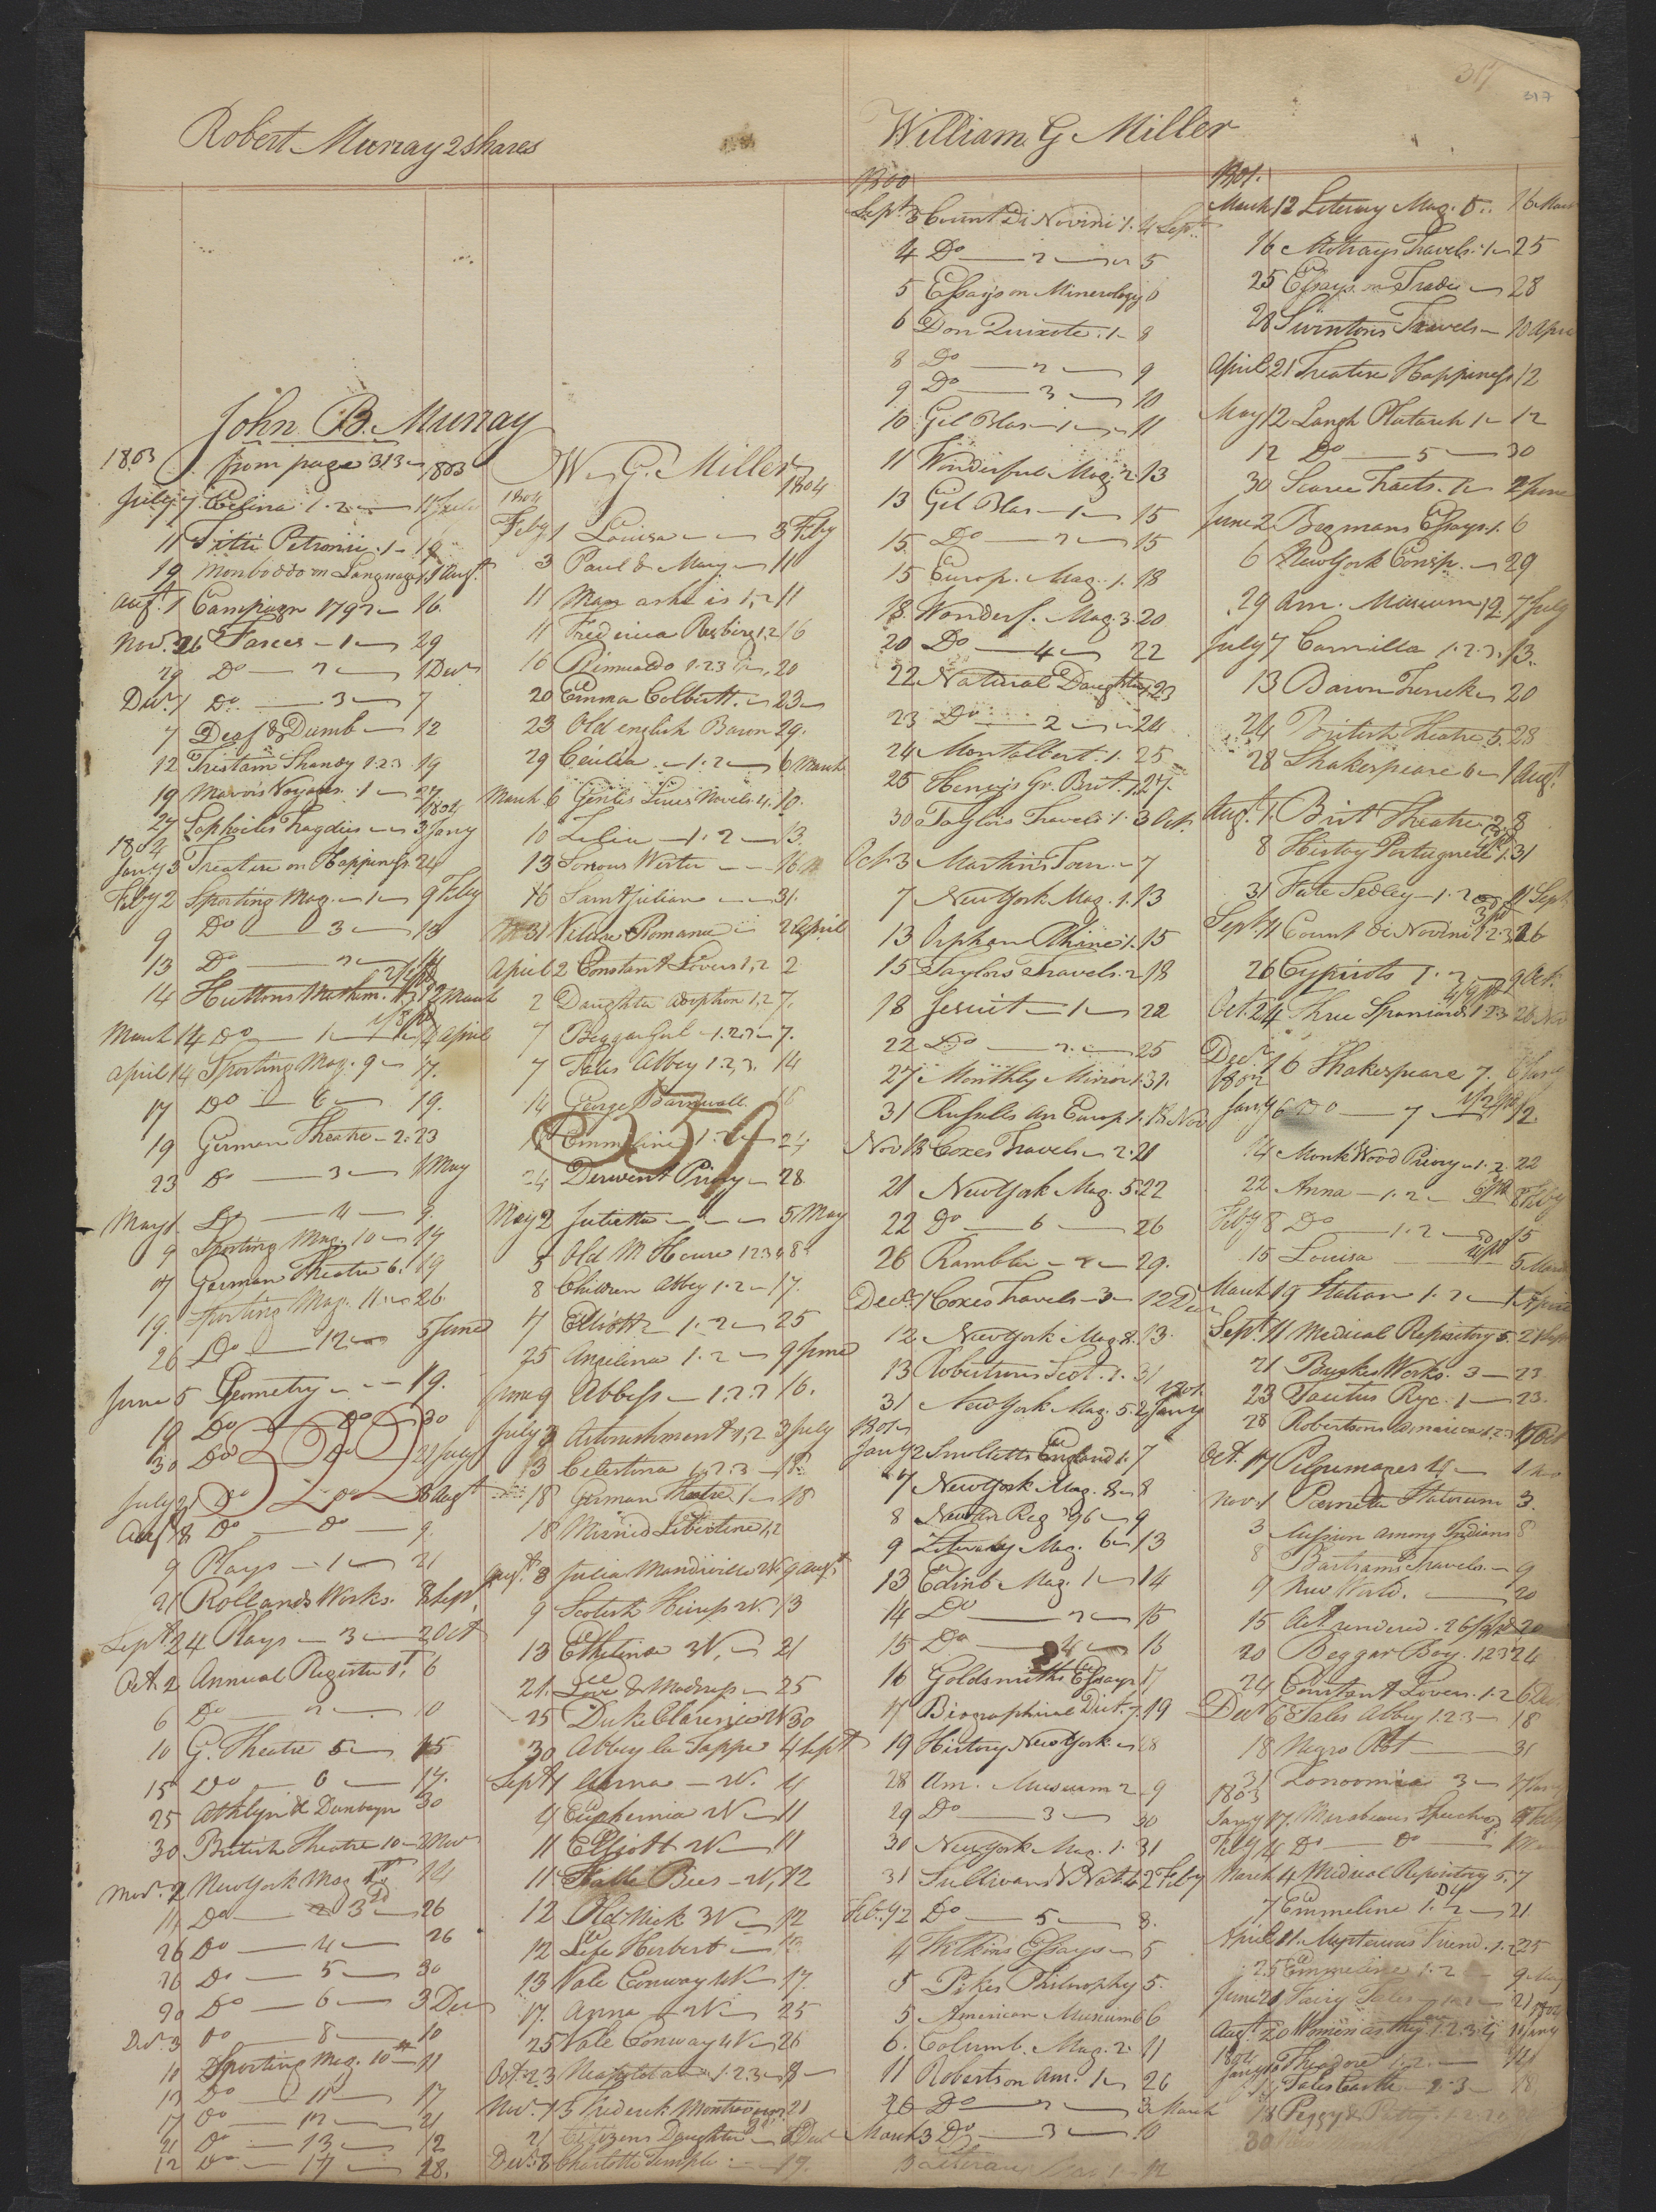 317
317
Robert Murray 2 shares
John B. Murray
1803 from page 313 1803
July 7 Celina 1.2 11 July
11 Titti Petronii 1 19
19 Monboddo on Language 1 1 Augt
Augt 1 Campaign 1792 16
Novr 26 Fasces 1 29
29 Do 2 1 Decr
Decr 1 Do 3 7
7 Deaf & Dumb 12
12 Tristam Shandy 1.2.3 19
19 Mavors Voyages 1 27
27 Sophocles Tragdies 3 Jany 1804
1804
Jany 3 Treatise on Happiness 24
Feby 2 Sporting Mag. 1 9 Feby
9 Do 3 13
13 Do 2 14
14 Huttons Mathm. 12 March
March 14 Do 1 April
April 14 Sporting Mag. 9 17
17 Do 6 19
19 German Theatre 2 23
23 Do 3 1 May
May 1 Do 4 9
9 Sporting Mag. 10 17
17 German Theatre 6 19
19 Sporting Mag. 11 26
26 Do 12 5 June
June 5 Geometry 19
19 Do Do 30
30 Do Do 21 July
322
July 21 Do Do 8 Augt
Augt 8 Do Do 9
9 Plays 1 21
21 Rollands Works 8 Sept
Sept 24 Plays 3 2 Oct
Oct. 2 Annual Register 1 6
6 Do 2 10
10 G. Theatre 5 15
15 Do 6 17
25 Athlyn & Dunbayn 30
30 British Theatre 10 2 Nov
Novr 2 New York Mag 14
11 Do 3 26
26 Do 4 26
26 Do 5 30
30 Do 6 3 Dec
Decr 3 Do 8 10
10 Sporting Mag. 10 11
11 Do 11 17
17 Do 12 21
21 Do 13 12
12 Do 17 28
W. G. Miller
1804 1804
Feby 1 Louisa 3 Feby
3 Paul & Mary 11
11 Man as he is 1,2 11
11 Frederica Risberg 1,2 16
16 Rinualdo 1.2.3 20
20 Emma Colbertt 23
23 Old english Baron 29
29 Cecilia 1.2 6 March
March 6 Genlis Lives Novels 4 10
10 Lilia 1.2 13
13 16
16 Saint Julian 31
31 Romance 2 April
April 2 Constant Lovers 1,2 2
2 Daughter adoption 1.2 7
7 Beggar Girl 1.2.3 7
7 Tales Abbey 1.2.3 14
14 George Barnwall 16
334
16 Emmeline 1.2 24
24 Derwent Priory 28
May 2 Julietta 5 May
5 Old M House 1 2 3 4 8
8 Children Abbey 1.2 17
17 Elliott 1.2 25
25 Angelina 1.2 9 June
June 9 Abbess 1.2.3 16
July 2 Astonishment 1,2 3 July
3 Celestina 1.2.3 18
18 German Theatre 1 18
18 Married Libertine 1,2
Augt 8 Julia Mandiville 2V 9 Augt
9 Scotish Heiress 2V. 13
13 Ethelina 3V. 21
21 Love & Madness 25
25 Duke Clarence 2V 30
30 Abbey la Trappe 4 Sept
Sept 4 Anna 2V. 4
4 Euphemia 2V 11
11 Elliott 2V 11
11 Battle Bees 2V. 12
12 Old Nick 3V 12
12 Life Herbert 13
13 Vale Conway 4V 17
17 Anna 2V 25
25 Vale Conway 4V 26
Oct. 23 Neapolitan 1.2.3
Nov. 15 Frederick Montravers 21
21 Citizens Daughter Decr
Decr 8 Charlotte Temple 17
William G Miller
1800
Sept 3 Count Di Novini 1. 4 Sept
4 Do 2 5
5 Essays on Minerology 6
6 Don Quixote 1 8
8 Do 2 9
9 Do 3 10
10 Gil Blas 1 11
11 Wonderful Mag. 2 13
13 Gil Blas 1 15
15 Do 2 15
15 Europ. Mag. 1. 18
18 Wonderf. Mag. 3. 20
20 Do 4 22
22 Natural Daughter 1 23
23 Do 2 24
24 Montalbert. 1. 25
25 Henrys Gr. Brit. 1. 27
30 Taylors Travels 1. 3 Oct.
Oct. 3 Martins Tour 7
7 New York Mag. 1. 13
13 Orphan Rhine 1. 15
15 Taylors Travels 2 18
18 Jesuit 1 22
22 Do 2 25
27 Monthly Mirror 1. 31
31 Russels An Europ 1. 13 Nov
Nov 13 Coxes Travels 2. 21
21 New York Mag. 5. 22
22 Do 6 26
26 Rambler 2 29
Decr 1 Coxes Travels 3 12 Dec
12 New York Mag 8. 13
13 Robertsons Scot. 1. 31
31 New York Mag. 5. 2 Jany 1801
1801
Jany 2 Smolletts England 1. 7
7 New York Mag. 8 8
8 New An Reg '96 9
9 Literary Mag. 6 13
13 Edinb. Mag. 1 14
14 Do 2 15
15 Do 4 16
16 Goldsmiths Essays 17
17 Biographical Dict. 7. 19
19 History New York 28
28 Am. Museum 2 9
29 Do 3 30
30 New York Mag. 1. 31
31 Sullivans V Nat. 4 2 Feby
Feby 2 Do 5 3
4 Wilkins Essays 5
5 Pikes Philosophy 5
5 American Museum 6 6
6 Columb. Mag. 2. 11
11 Robertson Am. 1 26
26 Do 2 3 March
March 3 Do 3 10
Literary Mag. 1 12
1801.
March 12 Literary Mag. 5. 16 March
16 Motrays Travels 1 25
25 Essays on Trade 28
28 Swintons Travels 10 April
April 21 Treatise Happiness 12
May 12 Langh Plutarch 1 12
12 Do 5 30
30 Scarce Tracts. 2 June
June 2 Bergmans Essays 1. 6
6 New York Consp. 29
29 Am. Museum 12. 7 July
July 7 Camilla 1.2.3. 13
13 Baron Trenck 20
24 British Theatre 5. 28
28 Shakespeare 6 1 Augt
Augt 1. Brit Theatre 2. 8
8 History Portuguese 1. 31
31 Kate Sedley 1.2 11 Sept
Sept 11 Count di Novini 1 2.3 26
26 Cypriots 1.2 9 Oct.
Oct. 24 Three Spaniards 1 2 3 26 Nov
Decr 16 Shakespeare 7. 6 Jany
1802
Jany 6 Do 7 12
14 Monk Wood Priory 1.2 22
22 Anna 1.2 8 Feby
Feby 8 Do 1.2 15
15 Louisa 5 March
March 19 Italian 1.2 April
Sept 11 Medical Repository 5. 21 Sept
21 Burkes Works. 3 23
23 Tacitus Ryc. 1 23
28 Robertsons America 1.2.3 17 Oct
Oct. 17 Pilgrimages 4 1 Nov
Nov. 1 Pamela Statorum 3
3 Mission among Indians 8
8 Bartrams Travels 9
9 New World. 20
15 Act rendered 20
20 Beggar Boy 1 2 3 24
24 Constant Lover 1.2 6 Dec.
Decr 6 Tales Abbey 1.2.3 18
18 Negro Plot 31
31 Zonoomia 3 17 Jany
1803
Jany 17 Mirabeaus Speeches 4 Feby
Feby 4 Do Do
March 4 Medical Repository 5. 7
7 Emmeline 1.2 21
April 11 Mysterious Friend 1.2 25
25 Emmeline 1.2 9 May
June 20 Fairy Tales 21
Augt 20 Women as they are 1.2.3.4 11 Jany 1804
1804
Jany Theodore 1.2. 14
14 Tales Castle 2.3 18
18 Peggy & Patty 1.2.3
30